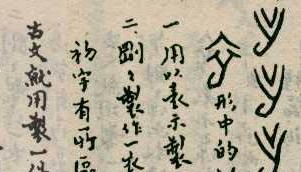 形中的
一用以表示製
二剛之製作一衣
初字有所區
古文就用製一件